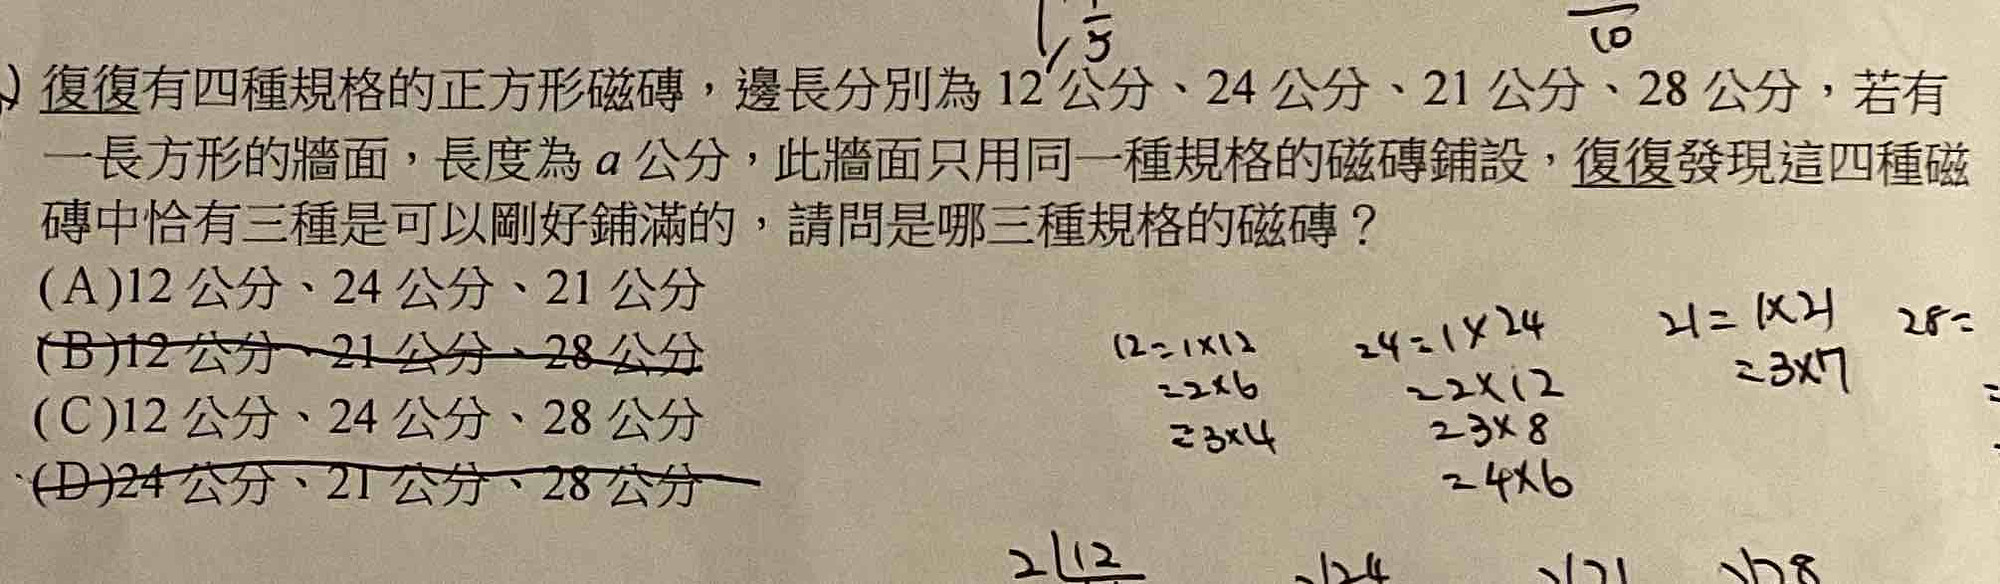 1/5
10
復復有四種規格的正方形磁磚，邊長分別為 12 公分、24 公分、21 公分、28 公分，若有
一長方形的牆面，長度為 a 公分，此牆面只用同一種規格的磁磚鋪設，復復發現這四種磁
磚中恰有三種是可以剛好鋪滿的，請問是哪三種規格的磁磚？
(A)12 公分、24 公分、21 公分
(B)12 公分、21 公分、28 公分
(C)12 公分、24 公分、28 公分
(D)24 公分、21 公分、28 公分
12=1×12
=2×6
=3×4
24=1×24
=2×12
=3×8
=4×6
21=1×21
=3×7
28=
2|12
24
21
28